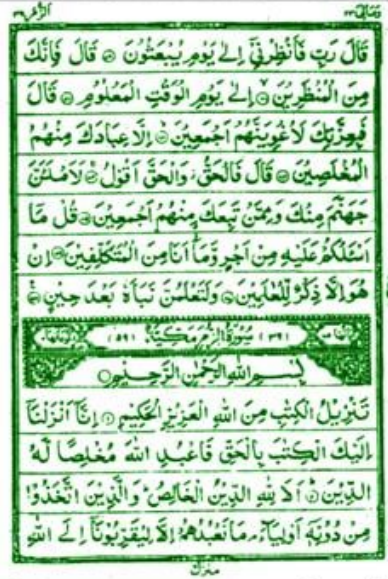 ومالى ٢٣ الزمر ٣٩
قَالَ رَبِّ فَأَنْظِرْنِيْٓ اِلٰى يَوْمِ يُبْعَثُوْنَ ۝ قَالَ فَاِنَّكَ
مِنَ الْمُنْظَرِيْنَ ۝ اِلٰى يَوْمِ الْوَقْتِ الْمَعْلُوْمِ ۝ قَالَ
فَبِعِزَّتِكَ لَاُغْوِيَنَّهُمْ اَجْمَعِيْنَ ۝ اِلَّا عِبَادَكَ مِنْهُمُ
الْمُخْلَصِيْنَ ۝ قَالَ فَالْحَقُّ وَالْحَقَّ اَقُوْلُ ۝ لَاَمْلَئَنَّ
جَهَنَّمَ مِنْكَ وَمِمَّنْ تَبِعَكَ مِنْهُمْ اَجْمَعِيْنَ ۝ قُلْ مَآ
اَسْئَلُكُمْ عَلَيْهِ مِنْ اَجْرٍ وَّمَآ اَنَا مِنَ الْمُتَكَلِّفِيْنَ ۝ اِنْ
هُوَ اِلَّا ذِكْرٌ لِّلْعٰلَمِيْنَ ۝ وَلَتَعْلَمُنَّ نَبَاَهٗ بَعْدَ حِيْنٍ ۝
(٣٩) سُوْرَةُ الزُّمَرِ مَكِّيَّةٌ (٥٩)
بِسْمِ اللّٰهِ الرَّحْمٰنِ الرَّحِيْمِ ۝
تَنْزِيْلُ الْكِتٰبِ مِنَ اللّٰهِ الْعَزِيْزِ الْحَكِيْمِ ۝ اِنَّآ اَنْزَلْنَآ
اِلَيْكَ الْكِتٰبَ بِالْحَقِّ فَاعْبُدِ اللّٰهَ مُخْلِصًا لَّهُ
الدِّيْنَ ۝ اَلَا لِلّٰهِ الدِّيْنُ الْخَالِصُ ؕ وَالَّذِيْنَ اتَّخَذُوْا
مِنْ دُوْنِهٖٓ اَوْلِيَآءَ ۘ مَا نَعْبُدُهُمْ اِلَّا لِيُقَرِّبُوْنَآ اِلَى اللّٰهِ
منزل